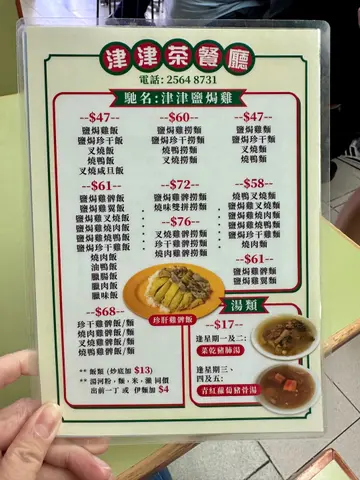 津津茶餐廳
電話: 2564 8731
馳名:津津鹽焗雞
--$47--
鹽焗雞飯
鹽焗珍干飯
叉燒飯
燒鴨飯
叉燒咸旦飯
--$61--
鹽焗雞髀飯
鹽焗雞翼飯
鹽焗雞叉燒飯
鹽焗雞燒肉飯
鹽焗雞燒鴨飯
鹽焗珍干雞飯
燒肉飯
油鴨飯
臘腸飯
臘肉飯
臘味飯
--$68--
珍干雞髀飯/麵
燒肉雞髀飯/麵
叉燒雞髀飯/麵
燒鴨雞髀飯/麵
--$60--
鹽焗雞撈麵
鹽焗珍干撈麵
燒鴨撈麵
叉燒撈麵
--$72--
鹽焗雞髀撈麵
燒味雙拼撈麵
--$76--
叉燒雞髀撈麵
珍干雞髀撈麵
燒肉雞髀撈麵
珍肝雞髀飯
--$47--
鹽焗雞麵
鹽焗珍干麵
叉燒麵
燒鴨麵
--$58--
燒鴨叉燒麵
鹽焗雞叉燒麵
鹽焗雞燒肉麵
鹽焗雞燒鴨麵
鹽焗珍干雞麵
燒肉麵
--$61--
鹽焗雞髀麵
鹽焗雞翼麵
湯類
--$17--
逢星期一及二:
菜乾豬肺湯
逢星期三、
四及五:
青紅蘿蔔豬骨湯
** 飯類 (炒底加 $13)
** 湯河粉，麵，米，瀨 同價
出前一丁 或 伊麵加 $4